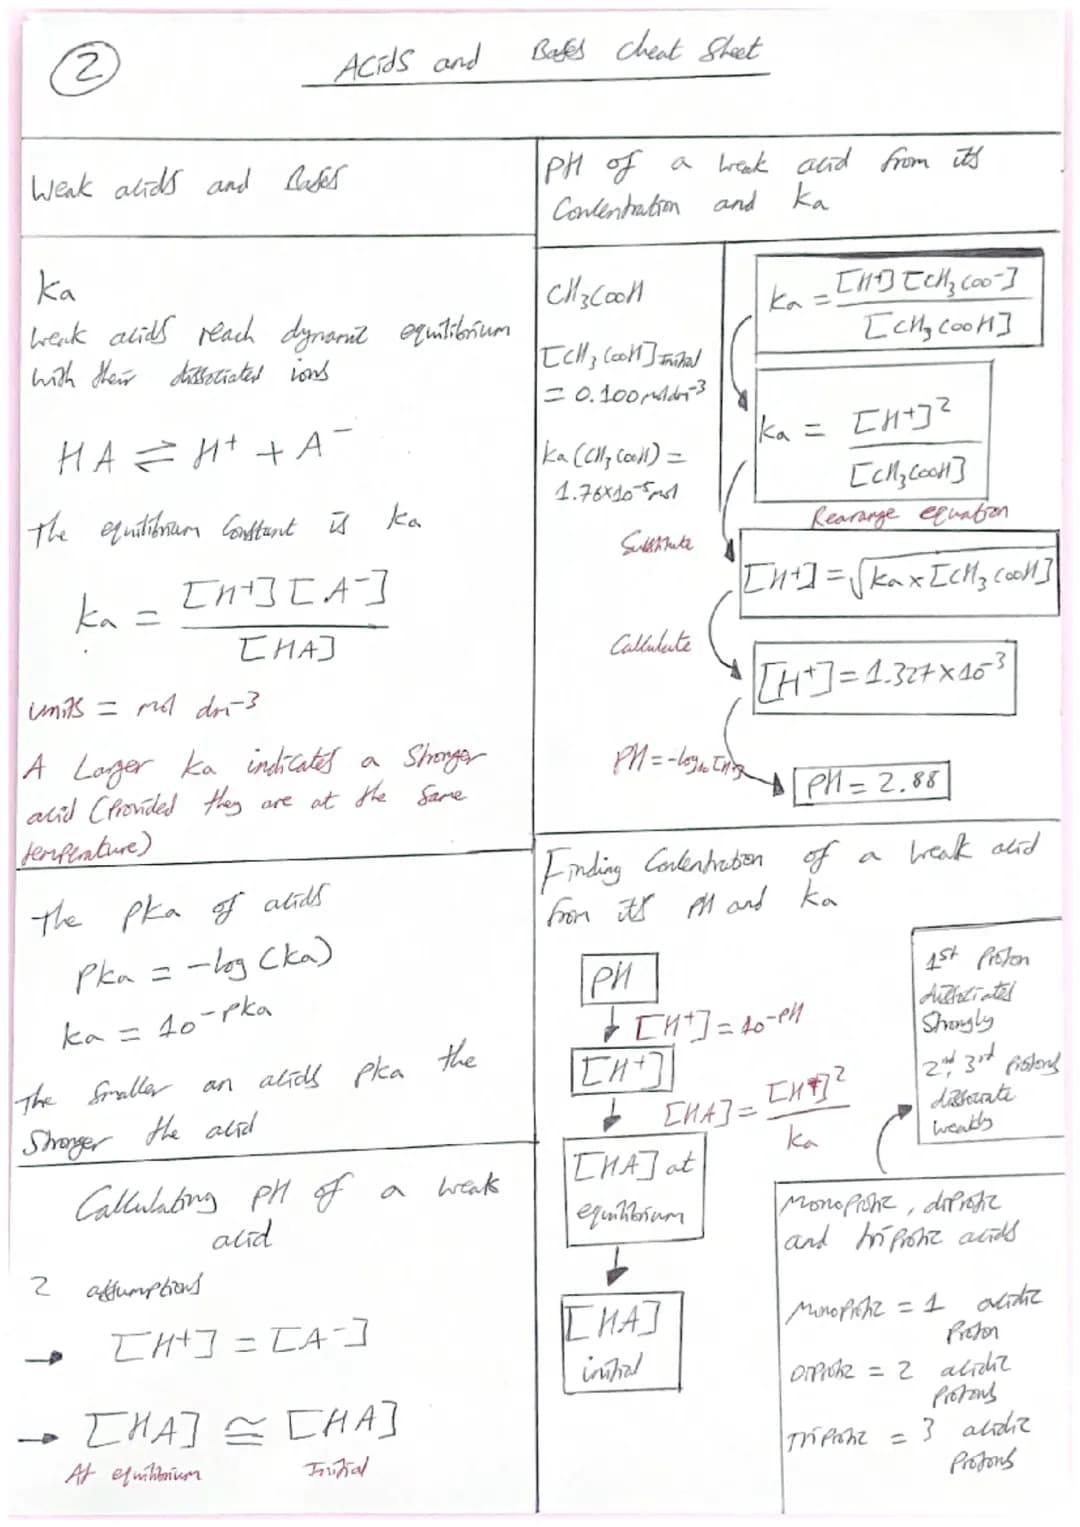 2
Acids and Bases Cheat Sheet
Weak acids and Bases
Ka
Weak acids reach dynamic equilibrium
with their dissociated ions
HA ⇌ H⁺ + A⁻
The equilibrium Constant is Ka
Ka = [H⁺][A⁻] / [HA]
units = mol dm⁻³
A Larger Ka indicates a Stronger
acid (Provided they are at the Same
temperature)
The PKa of acids
PKa = -log (Ka)
Ka = 10^-PKa
The Smaller an acids PKa the
Stronger the acid
Calculating PH of a weak
acid
2 assumptions
→ [H⁺] = [A⁻]
→ [HA] ≅ [HA]
At equilibrium Initial
PH of a weak acid from its
Concentration and Ka
CH₃COOH
[CH₃COOH] Initial
= 0.100 mol dm⁻³
Ka (CH₃COOH) =
1.76×10⁻⁵ mol
Ka = [H⁺][CH₃COO⁻] / [CH₃COOH]
Ka = [H⁺]² / [CH₃COOH]
Rearange equation
Substitute
[H⁺] = √Ka × [CH₃COOH]
Calculate
[H⁺] = 1.327×10⁻³
PH = -log₁₀[H⁺]
PH = 2.88
Finding Concentration of a weak acid
from its PH and Ka
PH
[H⁺] = 10^-PH
[H⁺]
[HA] = [H⁺]² / Ka
[HA] at
equilibrium
[HA]
initial
1st Proton
dissociates
Strongly
2nd, 3rd Protons
dissociate
weakly
Monoprotic, diprotic
and triprotic acids
Monoprotic = 1 acidic
Proton
Diprotic = 2 acidic
Protons
Triprotic = 3 acidic
Protons